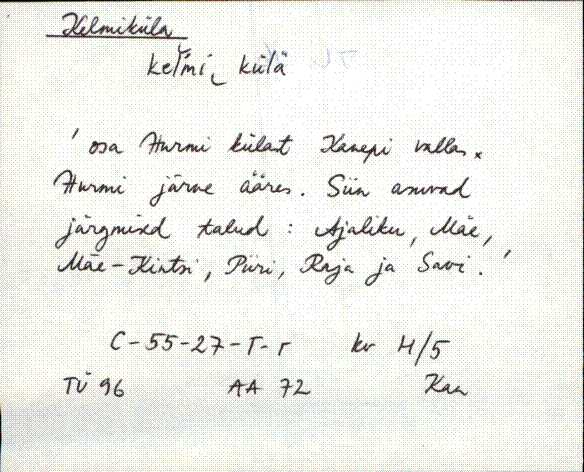 Kelmiküla
kel̆mi külä
' osa Hurmi külast Kanepi vallas
Hurmi järve ääres. Siin asuvad
järgmised talud : Ajaliku, Mäe,
Mäe-Kintsi, Piiri, Raja ja Savi. '
C-55-27-T-r kv H/5
TÜ 96 AA 72 Kan